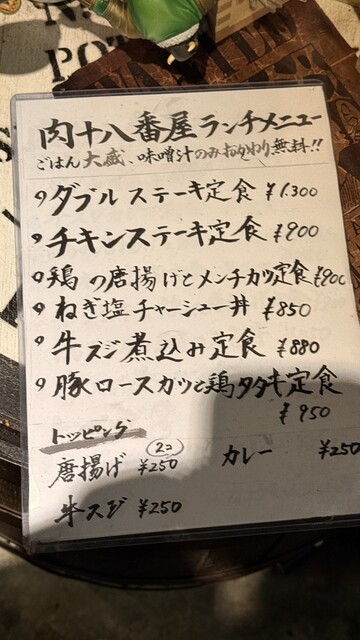 肉十八番屋ランチメニュー
ごはん大盛、味噌汁のみおかわり無料!!
ダブルステーキ定食 ¥1.300
チキンステーキ定食 ¥900
鶏の唐揚げとメンチカツ定食 ¥900
ねぎ塩チャーシュー丼 ¥850
牛スジ煮込み定食 ¥880
豚ロースカツと鶏タタキ定食
¥950
トッピング
唐揚げ 2コ ¥250 カレー ¥250
牛スジ ¥250